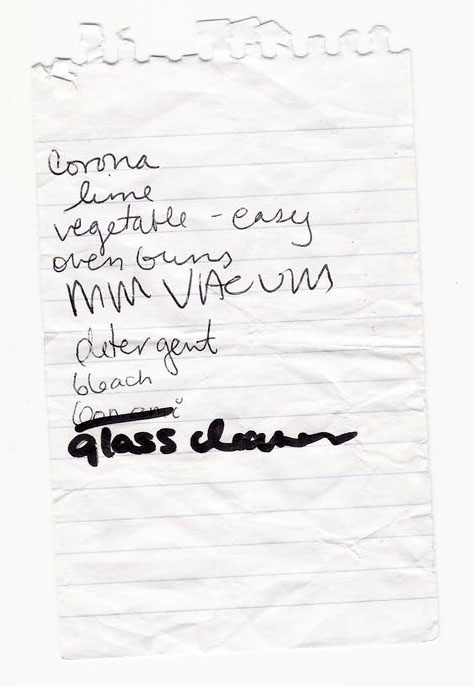 Corona
lime
vegetable - easy
oven buns
MM VACUUM
detergent
bleach
bon ami
glass cleaner